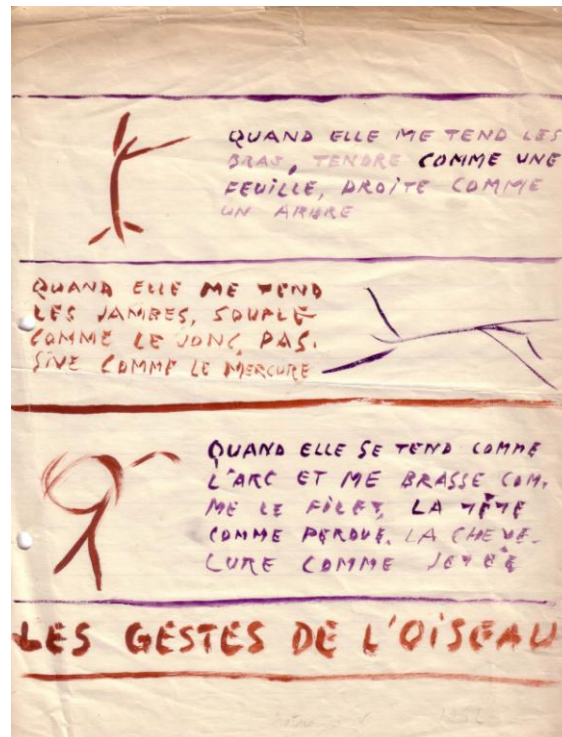 QUAND ELLE ME TEND LES
BRAS, TENDRE COMME UNE
FEUILLE, DROITE COMME
UN ARBRE
QUAND ELLE ME TEND
LES JAMBES, SOUPLE
COMME LE JONC, PAS-
SIVE COMME LE MERCURE
QUAND ELLE SE TEND COMME
L'ARC ET ME BRASSE COM-
ME LE FILET, LA TÊTE
COMME PERDUE, LA CHEVE-
LURE COMME JETÉE
LES GESTES DE L'OISEAU